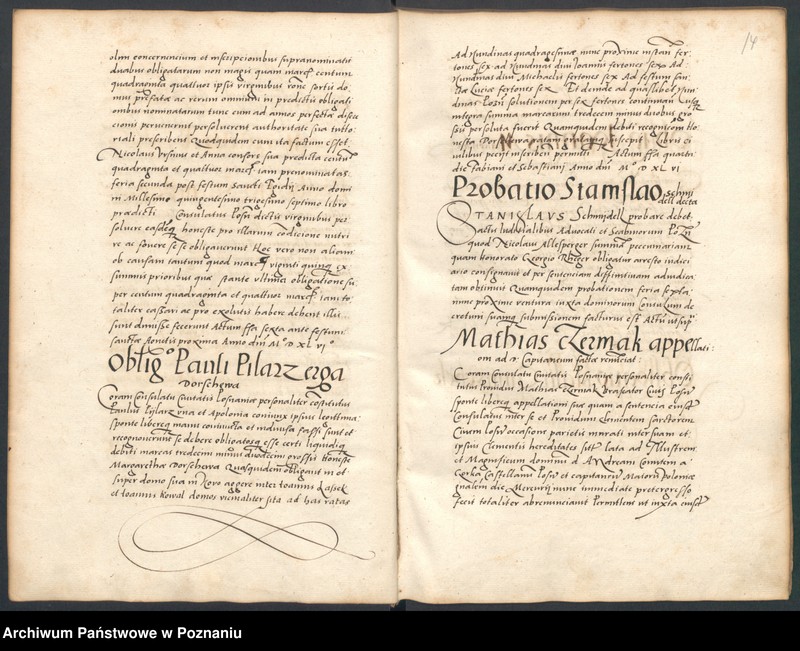 olim concernencium et inscripcionibus supranominatis
duabus obligatarum non magis quam marcas centum
quadraginta quattuor ipsis virginibus sortis do
mus prefatae ac rerum omnium in predictis obligati
onibus nominatarum tunc cum ad annos perfectae discre
cionis pervenerint persolverent authoritate sua tutto
riali prescribent Quodquidem cum ita factum esset
Nicolaus et Anna consors sua predicta centum
quadraginta et quattuor iam prenominatas
feria secunda post festum Sancti Egidij Anno domini
Millesimo quingentesimo trigesimo septimo libro
praedicti Consulatus dictis virginibus per
solvere easdem honeste pro illarum condicione nutri
re ac fovere se se obligaverunt Hoc vero non aliam
ob causam tantum quod marcas viginti quinque ex
summis prioribus quae stante ultima obligatione su
per centum quadraginta et quattuor iam to
taliter cassari ac pro exolutis habere debent illi
sunt dimisse fecerunt Actum feria sexta ante festum
sanctae proxima Anno dni M D XL VI
Oblig Pauli Pilarz erga
Dorschewa
Coram Consulatu Civitatis Posnaniae personaliter constitutus
Paulus Pijlarz una et Apolonia coniunx ipsius legittima
sponte libereque manu coniuncta et indivisa fassi sunt et
recognoverunt se debere obligatosque esse certi liquidique
debiti marcas tredecim minus duodecim grossis Honestae
Margarethae Dorschewa Quasquidem obligavit in et
super domo sua in Novo aggere inter Ioannis Lassek
et Ioannis Kowal domos vicinaliter sita ad has ratas
14
Ad Nundinas quadragesimae nunc proxime instan fer
tones sex ad Nundinas divi Ioannis fertones sex Ad
Nundinas divi Michaelis fertones sex Ad festum san
ctae Luciae fertones sex Et deinde ad quaslibet Nun
dinas solutionem per sex fertones continuari usque
integra summa marcarum tredecim minus duobus gro
ssis persoluta fuerit Quamquidem debiti recognicionem Ho
nesta suscepit Libris ci
vilibus petijt inscriben permitti Actum ffa quarta
die Fabiani et Sebastiani Anno dni M D XL VI
Probatio Stanislao Schmi
dell decta
STANISLAVS Schmijdell probare debet
Actis Iudicialibus Advocati et Scabinorum Pozn
quod Nicolaus Allesperger summam pecuniariam
quam honorato Georgio Rieger obligatus arresto iudici
ario consignavit et per sentenciam diffinitivam adiudica
tam obtinuit Quamquidem probationem feria sexta
nunc proxime ventura iuxta dominorum Consulum de
cretum suamque submissionem facturus est Actum ut supra
Mathias Czermak appellati:
onem ad d: Capitaneum factae renunciat:
Coram Consulatu Civitatis Posnaniae personaliter consti
tutus Providus Mathias Czermak Braseator Civis Posn
sponte libereque appellationi suae quam a sentencia eiusdem
Consulatus inter se et Providum Clementem sartorem
Civem Posn occasione parietis murati inter suam et
ipsius Clementis hereditates siti lata ad Illustrem
et Magnificum dominum d Andream Comitem a
Gorka Castellanum Posn et capitaneum Maioris Poloniae
gnalem die Mercurij nunc immediate preterg resso
fecit totaliter abrenunciavit Permittens ut iuxta eiusdem
Archiwum Państwowe w Poznaniu